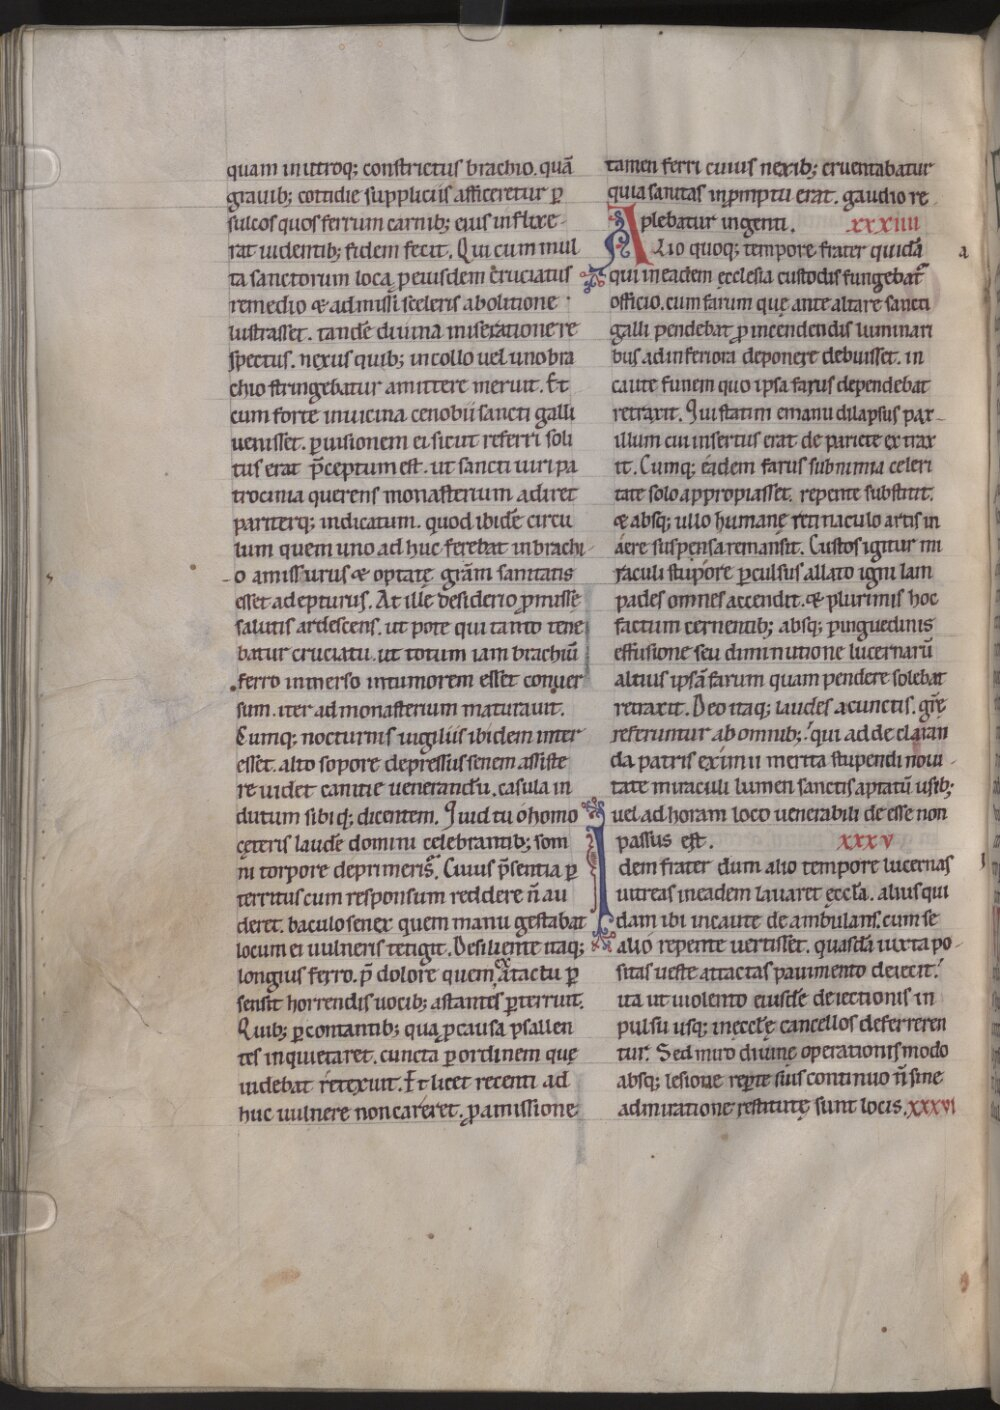 quam in utroq; constrictus brachio. quā
grauib; cottidie suppliciis afficeretur ꝑ
sulcos quos ferrum carnib; eius inflixe-
rat uidentib; fidem fecit. Qui cum mul
ta sanctorum loca ꝓ eiusdem cruciatus
remedio & admissi sceleris abolitione
lustrasset. tandē diuina miseratione re
spectus. nexus quib; in collo uel uno bra
chio stringebatur amittere meruit. Et
cum forte in uicina cenobii sancti galli
uenisset. ꝑ uisionem ei sicut referri soli
tus erat p̄ceptum est. ut sancti uiri pa
trocinia querens monasterium adiret
pariterq; indicatum. quod ibidē circu
lum quem uno adhuc ferebat in brachi-
o amissurus & optatę grām sanitatis
esset adepturus. At ille desiderio ꝓmissę
salutis ardescens. ut pote qui tanto tene
batur cruciatu. ut totum iam brachiū
ferro inmerso in tumorem esset conuer
sum. iter ad monasterium maturauit.
Cumq; nocturnis uigiliis ibidem inter
esset. alto sopore depressus senem assiste
re uidet canitie uenerandū. casula in
dutum sibiq; dicentem. Quid tu o homo
cęteris laudē domini celebrantib; som
ni torpore deprimeris. Cuius p̄sentia ꝑ
territus cum responsum reddere n̄ au
deret. baculo senex quem manu gestabat
locum ei uulneris tetigit. Desiliente itaq;
longius ferro. p̄ dolore quem ex attactu ꝑ
sensit horrendis uocib; astantes ꝑterruit.
Quib; ꝑcontantib; qua ꝓ causa psallen
tes inquietaret. cuncta ꝑ ordinem quę
uidebat retexuit. Et licet recenti ad
huc uulnere non careret. ꝓ amissione
tamen ferri cuius nexib; cruentabatur
quia sanitas in promptu erat. gaudio re
plebatur ingenti. xxxiiii
Alio quoq; tempore frater quidā a
qui in eadem ęcclesia custodis fungebat̄
officio. cum farum quę ante altare sancti
galli pendebat ꝓ incendendis luminari
bus ad inferiora deponere debuisset. in
caute funem quo ipsa farus dependebat
retraxit. Qui statim e manu dilapsus pax-
illum cui insertus erat de pariete extrax
it. Cumq; eadem farus sub nimia celeri
tate solo appropiasset. repente substitit.
& absq; ullo humanę retinaculo artis in
aere suspensa remansit. Custos igitur mi
raculi stupore ꝑculsus allato igni lam
pades omnes accendit. & plurimis hoc
factum cernentib; absq; pinguedinis
effusione seu diminutione lucernarū
altius ipsā farum quam pendere solebat
retraxit. Deo itaq; laudes a cunctis. grē
referuntur ab omnib; qui ad declaran
da patris eximii merita stupendi noui-
tate miraculi lumen sanctis aptatū usib;
uel ad horam loco uenerabili deesse non
passus est. xxxv
Idem frater dum alio tempore lucernas
uitreas in eadem lauaret ęccla. alius qui
dam ibi incaute deambulans. cum se
alio repente uertisset. quasdā iuxta po-
sitas ueste attactas pauimento deiecit.
ita ut uiolento eiusdē deiectionis in
pulsu usq; in ęcclę cancellos deferreren
tur. Sed miro diuinę operationis modo
absq; lesione reꝑte suis continuo n̄ sine
admiratione restitutę sunt locis. xxxvi